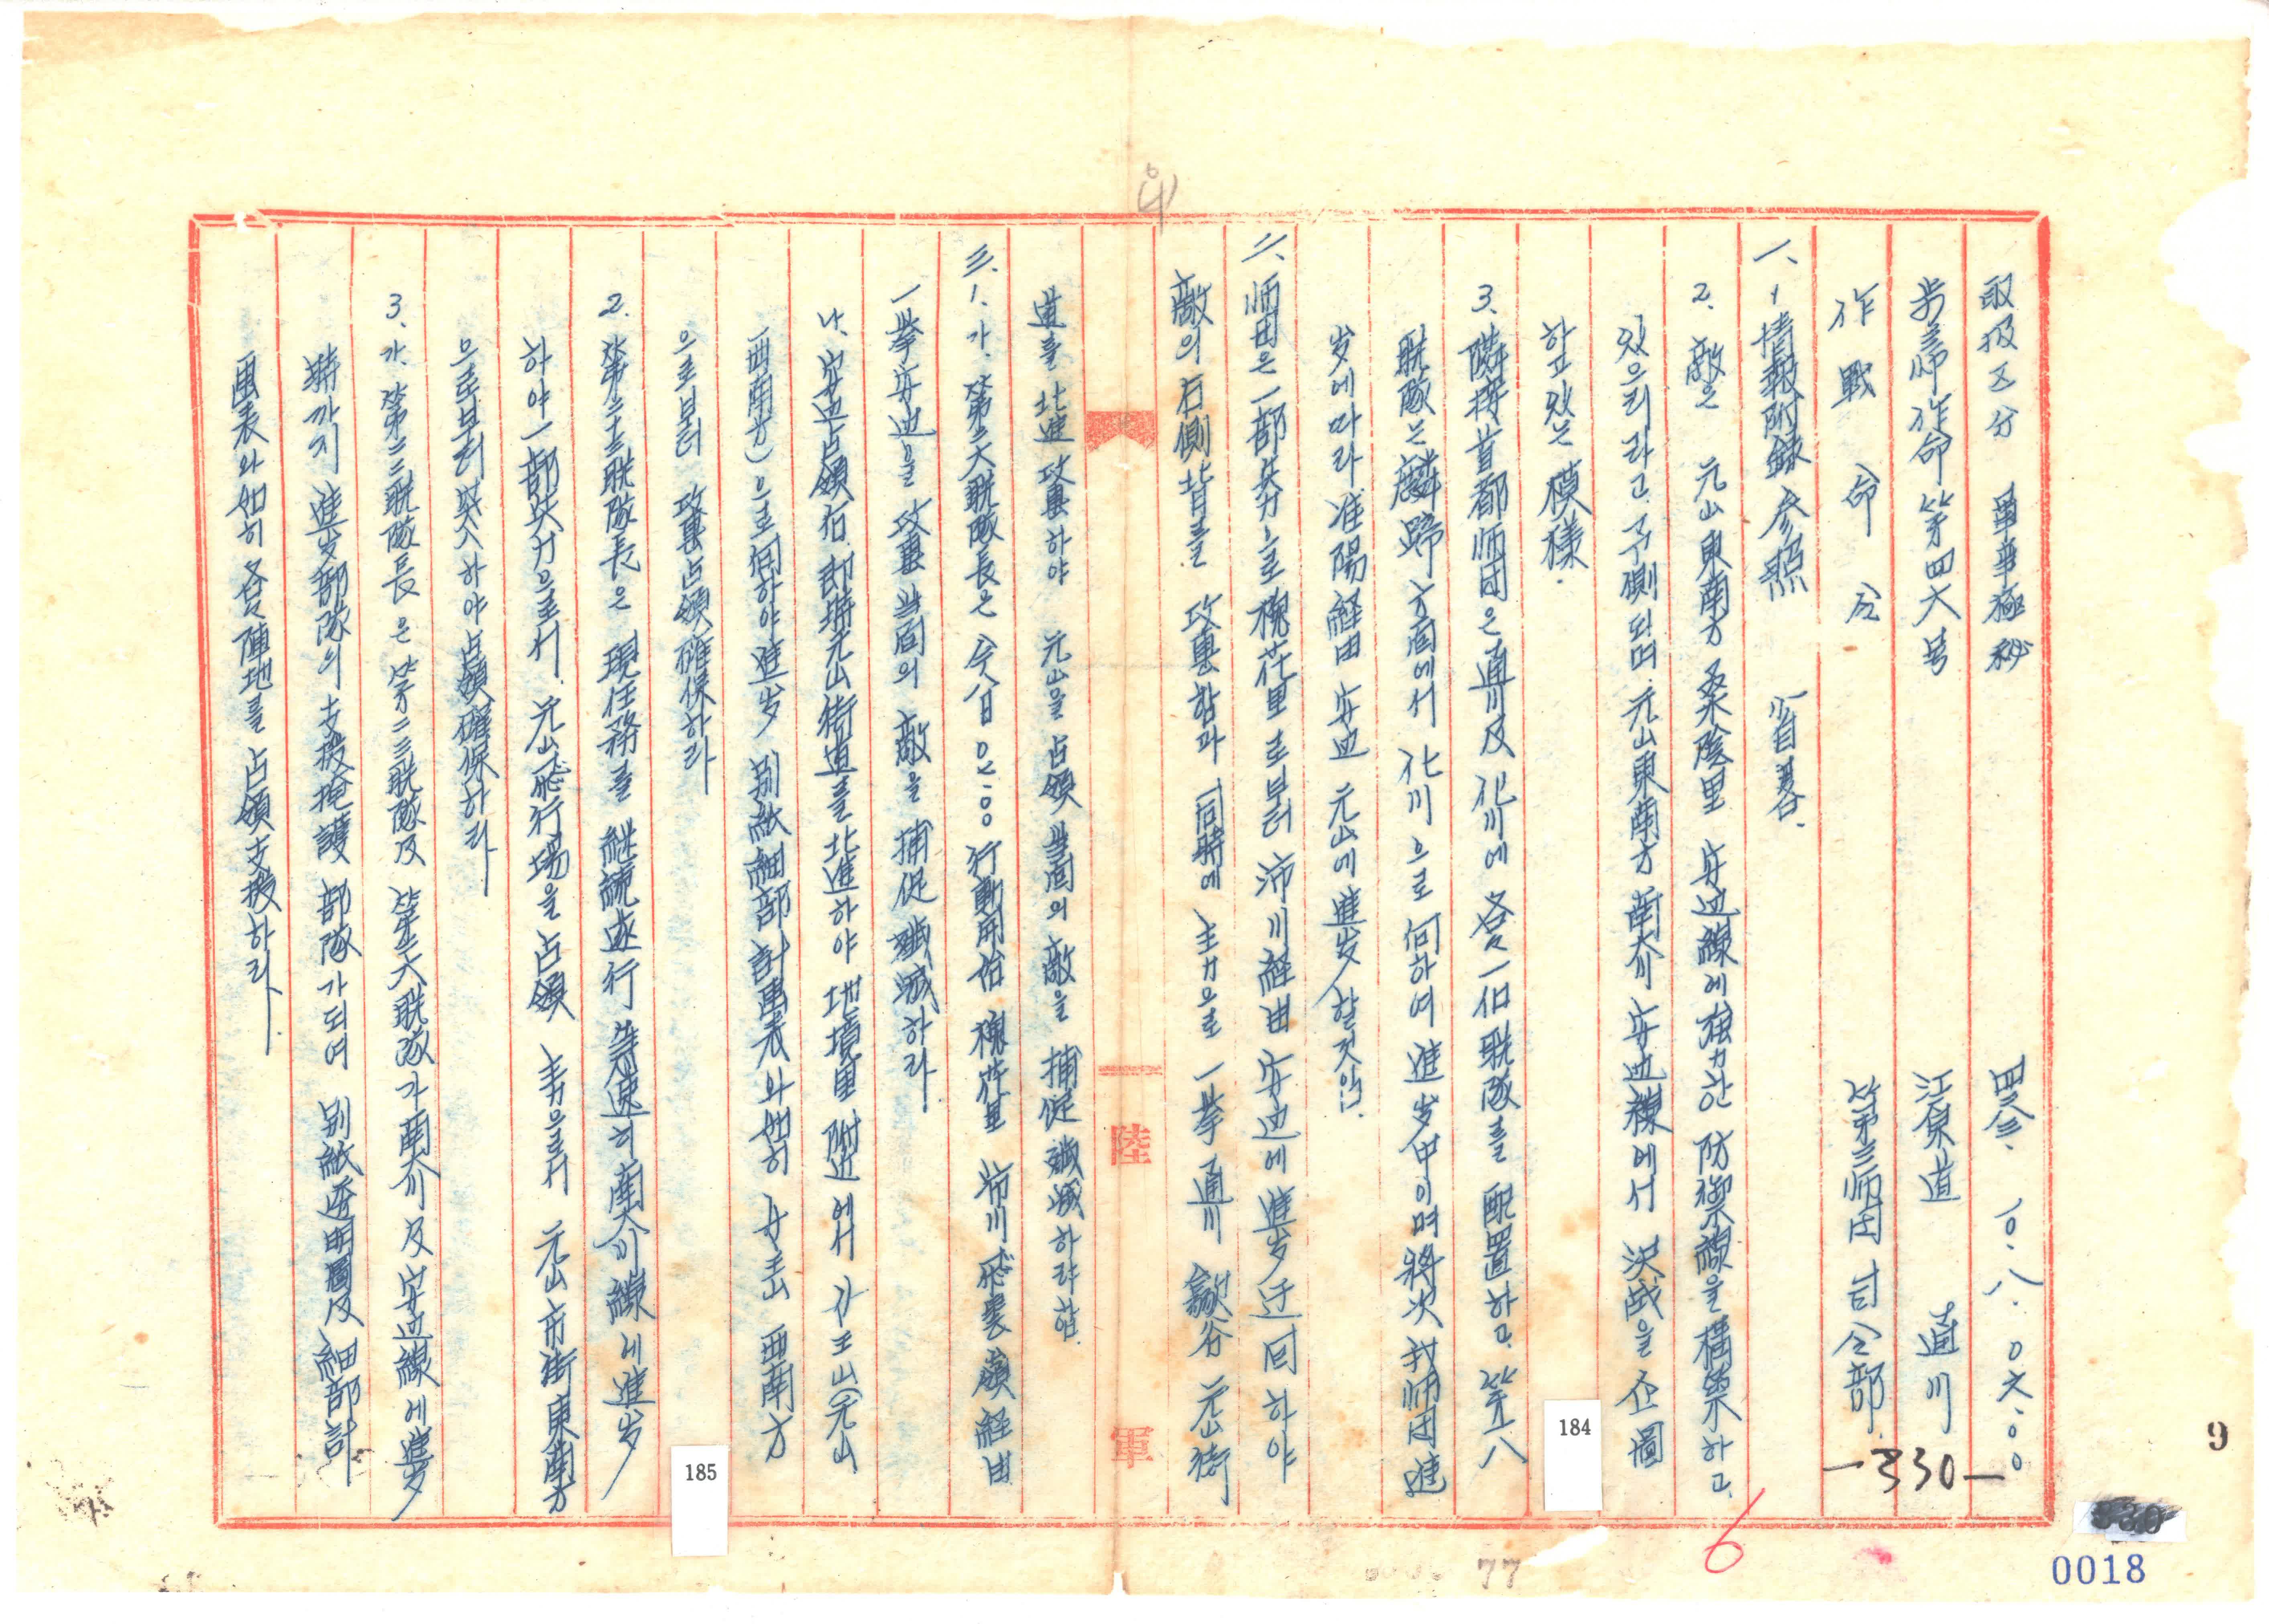 取扱区分 軍事極秘
四二八三. 一0. 八. 0六.00
步三師作命第四六号
江原道 通川
作戰命令
第三師団司令部
一、1 情報附録 参照 省畧.
2. 敵은 元山東南方 桑陰里 安辺線에 强力한 防禦線을 構築하고
있으리라고 予測되며 元山東南方 南大川 安辺線에서 決战을 企圖
하고 있는 模樣.
3. 隣接 首都师団은 通川及 化川에 各各 一個 聯隊를 配置하고 第一八
聯隊는 麟蹄 方面에서 化川으로 向하여 進岁中이며 將次 我师団 進
岁에 따라 淮陽 経由 安辺 元山에 進岁할것임.
二、师団은 一部兵力으로 槐花里로부터 沛川 経由 安辺에 進岁 迂回하야
敵의 右側背를 攻裏함과 同時에 主力으로 一挙 通川 歙谷 元山街
道를 北進 攻裏하야 元山을 占領 当面의 敵을 捕促 殲滅하랴함.
三. 1. 가. 第二六聯隊長은 今八日 0八:00 行動開始 槐花里 沛川 飛雲嶺 経由
一挙 安辺을 攻裏 当面의 敵을 捕促 殲滅하라.
나. 安辺 占領后 卽時 元山街道를 北進하야 地境里 附近에서 각王山(元山
西南方)으로 向하야 進岁 別紙 細部計畫表와 如히 각王山 西南方
으로부터 攻裏 占領 確保하라
2. 第二十三聯隊長은 現任務를 継続 遂行 急速히 南大川線에 進岁
하야 一部兵力으로서 元山飛行場을 占領 主力으로서 元山市街 東南方
으로부터 突入하야 占領 確保하라
3. 가. 第二二聯隊長은 第二三聯隊及 第二六聯隊가 南大川及 安辺線에 進岁
時까지 進岁部隊의 支援掩護 部隊가되여 別紙 透明圖及 細部計
畫表와 如히 各各 陣地를 占領 支援하라.
陸
軍
184
185
-330-
330
6
9
77
0018